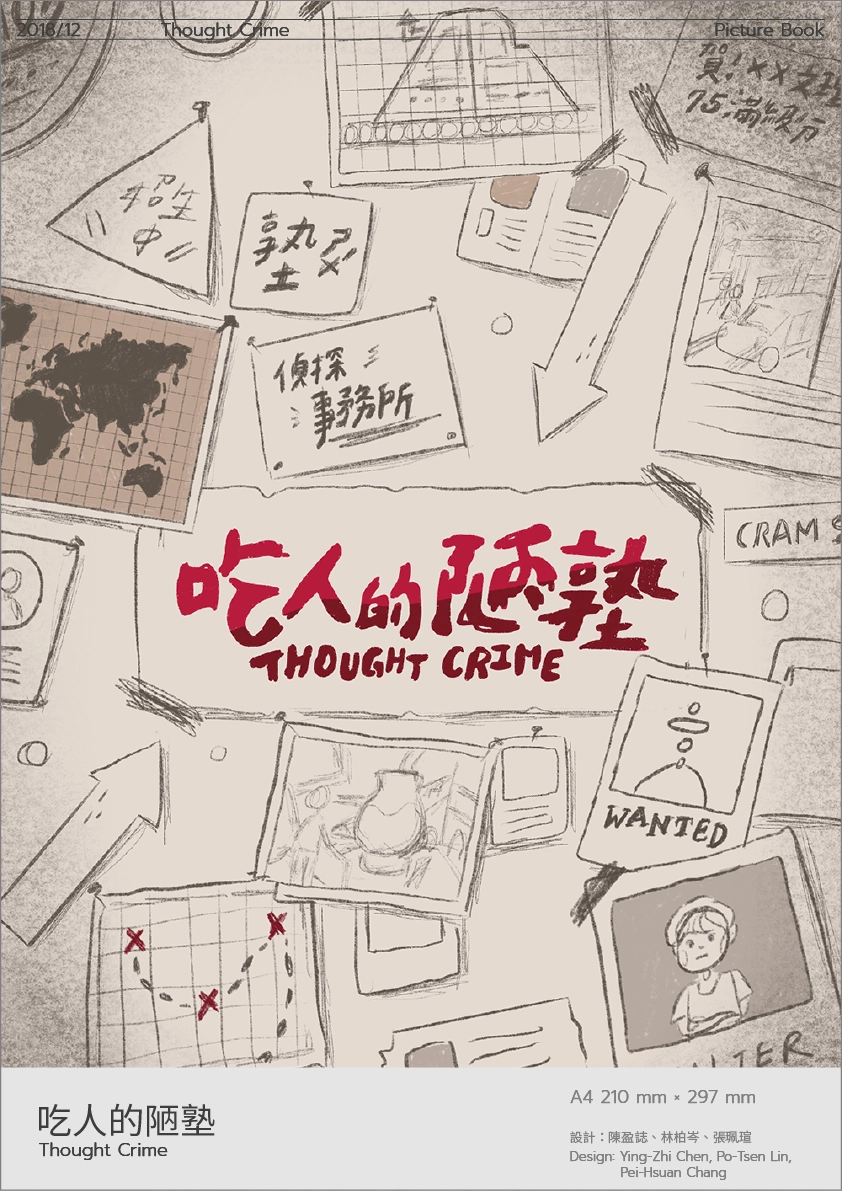 2018/12 Thought Crime Picture Book
賀！××文理
75滿級分
招生
中
塾
偵探
事務所
CRAM S
吃人的陋塾
THOUGHT CRIME
WANTED
吃人的陋塾
Thought Crime
A4 210 mm × 297 mm
設計：陳盈誌、林柏岑、張珮瑄
Design: Ying-Zhi Chen, Po-Tsen Lin,
Pei-Hsuan Chang